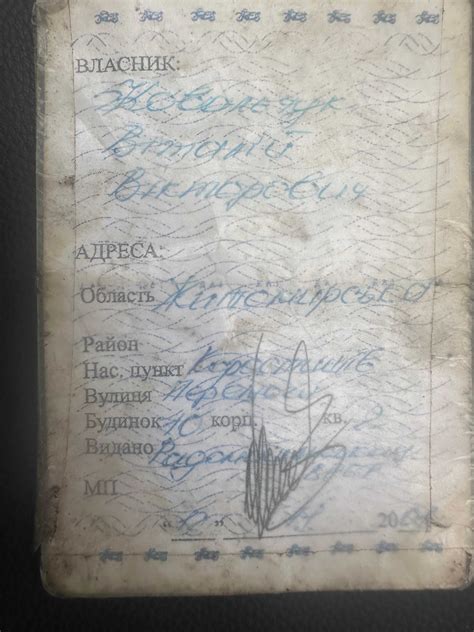 ВЛАСНИК:
Ковальчук
Віталій
Вікторович
АДРЕСА:
Область Житомирська
Район
Нас. пункт
Вулиця Перемоги
Будинок 10 корп. кв. 2
Видано
МП
" " 200